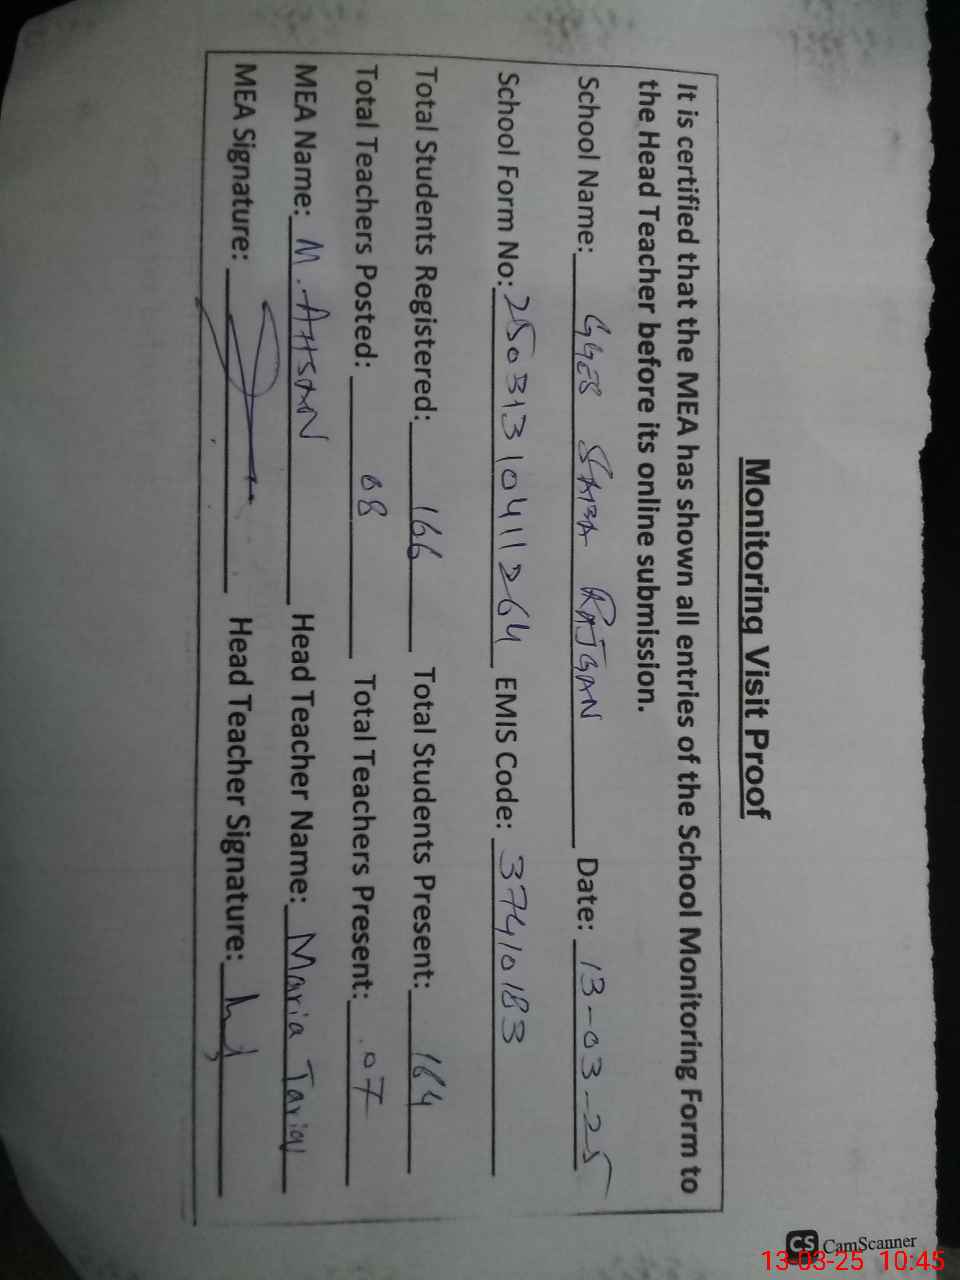 Monitoring Visit Proof
It is certified that the MEA has shown all entries of the School Monitoring Form to
the Head Teacher before its online submission.
School Name: GGES SABA RAJGAN Date: 13-03-25
School Form No: 25031310411264 EMIS Code: 37410183
Total Students Registered: 166 Total Students Present: 164
Total Teachers Posted: 08 Total Teachers Present: 07
MEA Name: M. AHSAN Head Teacher Name: Maria Tariq
MEA Signature: Head Teacher Signature:
CS CamScanner
13-03-25 10:45